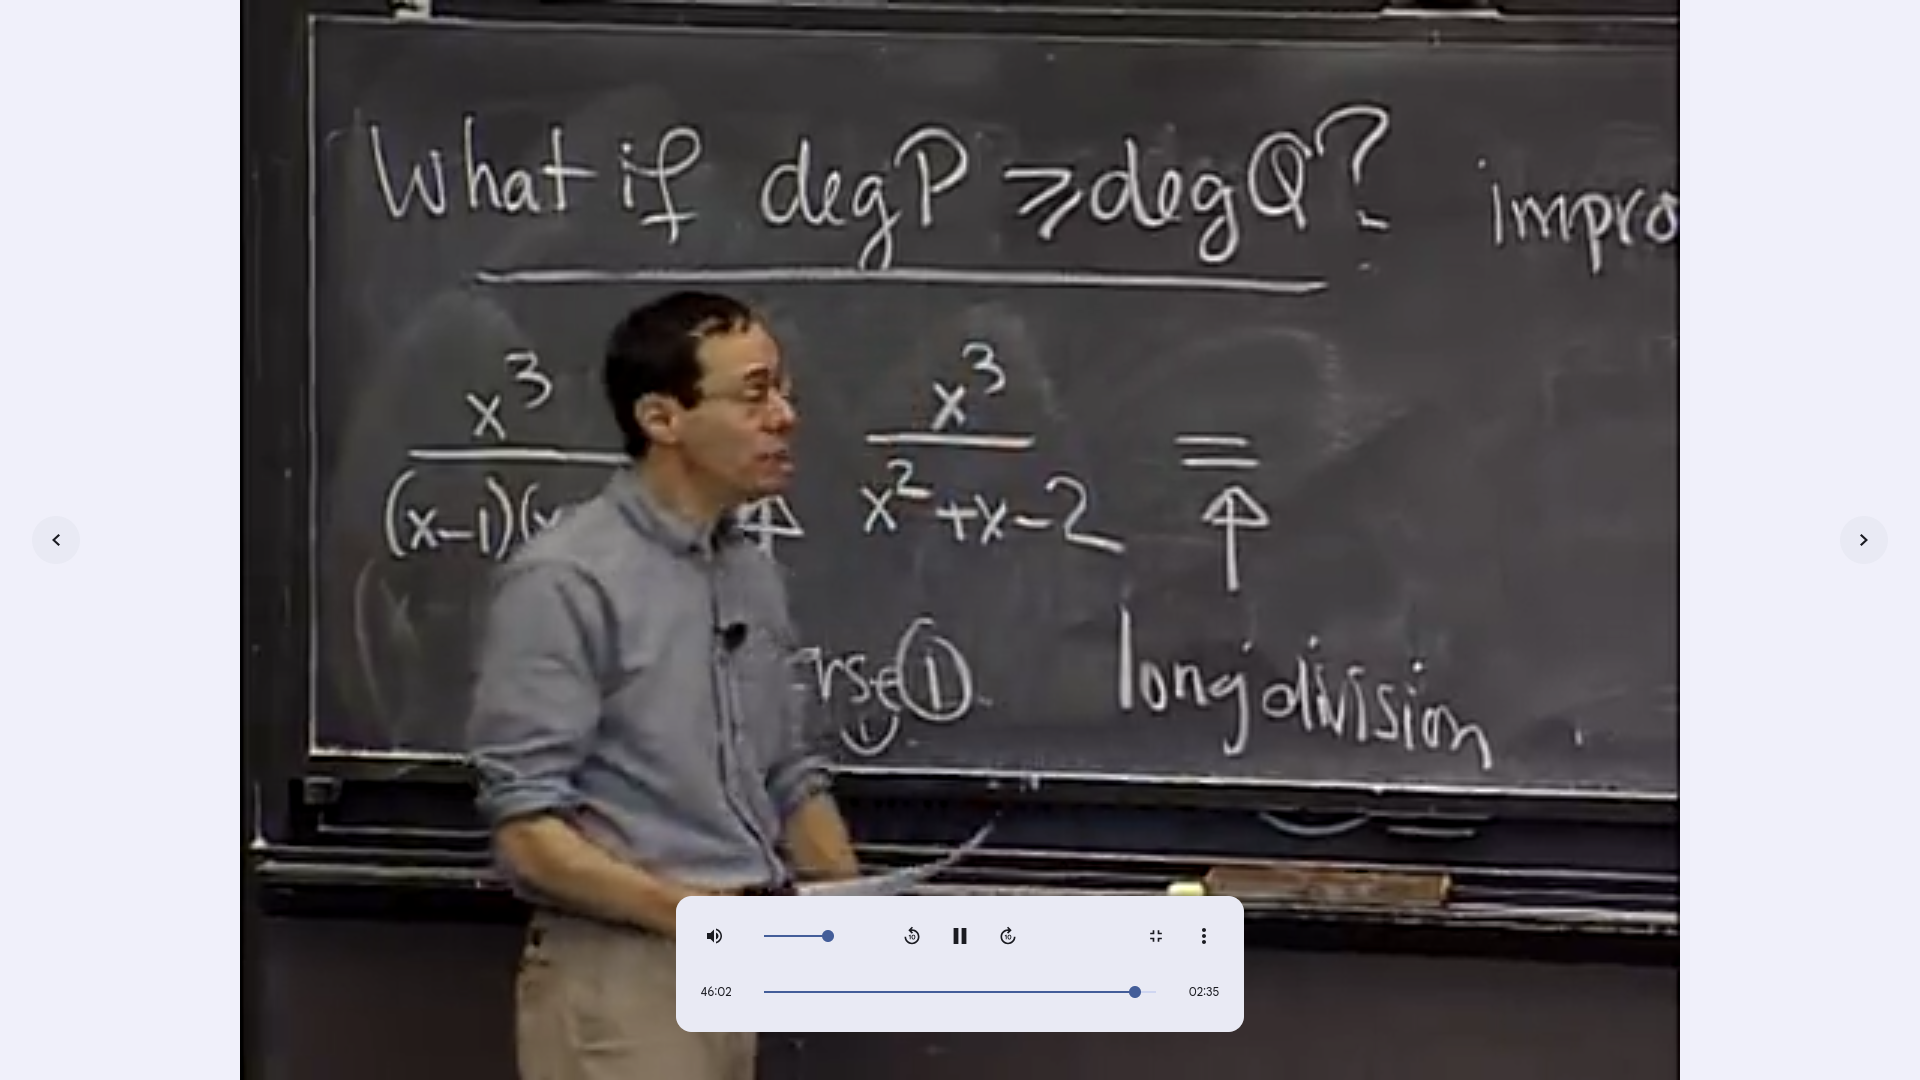 What if deg P ≥ deg Q? impro
x³ x³ =
(x-1)( x²+x-2
① long division
10 10
46:02 02:35